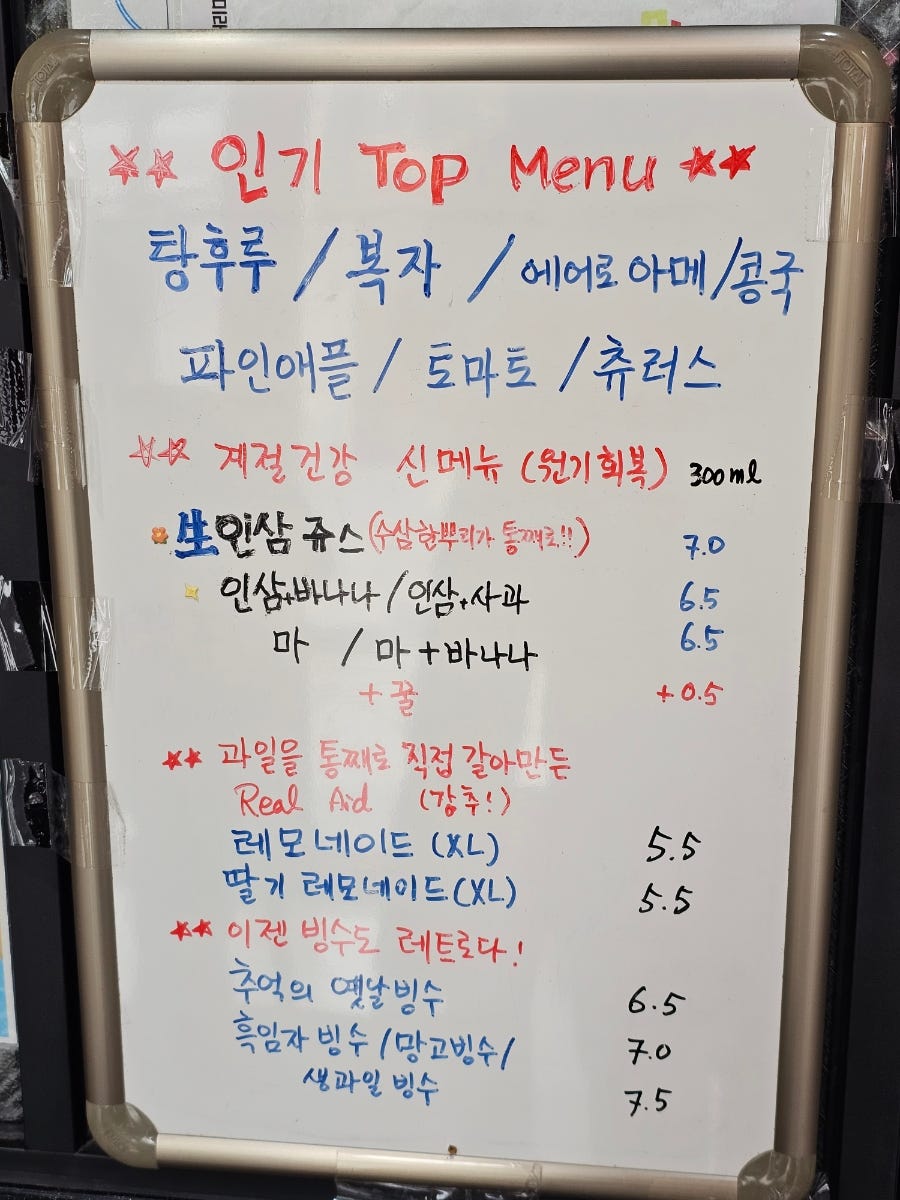 ** 인기 Top Menu **
탕후루 / 복자 / 에어로아메 / 콩국
파인애플 / 토마토 / 츄러스
** 계절건강 신메뉴 (원기회복) 300ml
生인삼쥬스 (수삼한뿌리가 통째로!!) 7.0
인삼+바나나 / 인삼+사과 6.5
마 / 마+바나나 6.5
+ 꿀 +0.5
** 과일을 통째로 직접 갈아만든
Real Aid (강추!)
레모네이드 (XL) 5.5
딸기 레모네이드(XL) 5.5
** 이젠 빙수도 레트로다!
추억의 옛날빙수 6.5
흑임자 빙수 / 망고빙수 / 7.0
생과일 빙수 7.5